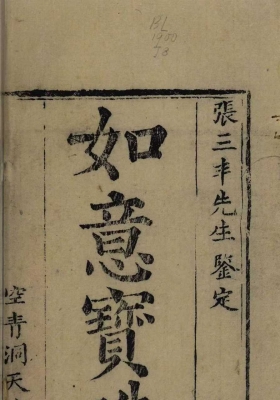 BL
1950
張三丰先生鑒定
如意寶
空青洞天